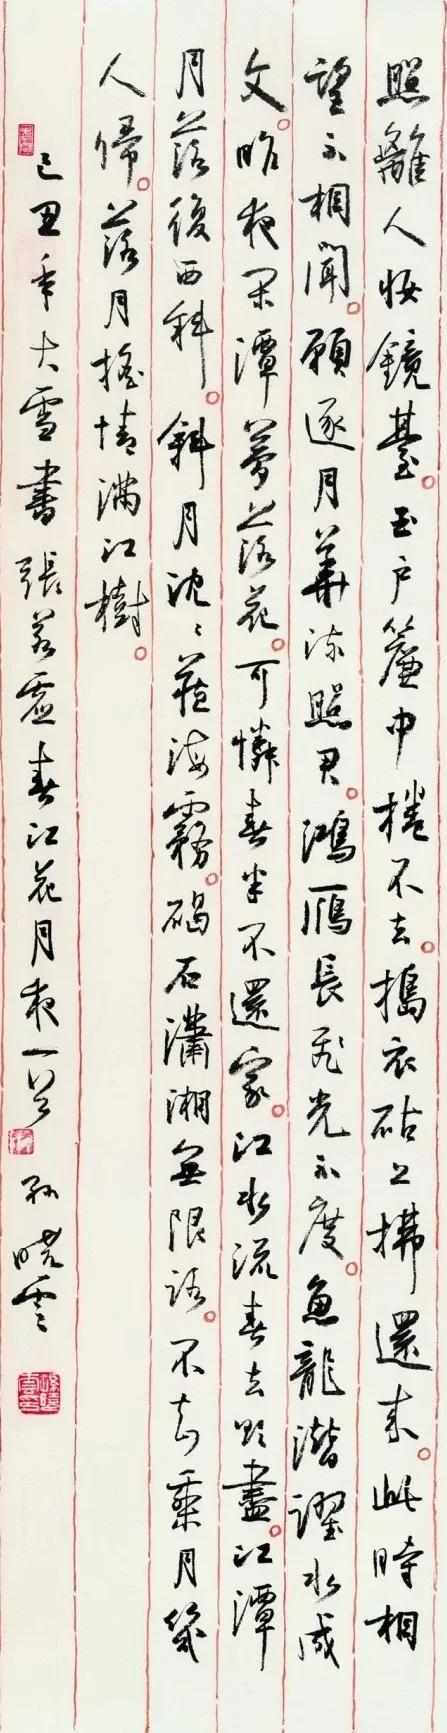 照離人妝鏡臺。玉户簾中捲不去。搗衣砧上拂還来。此時相
望不相聞。願逐月華流照君。鴻雁長飛光不度。魚龍潛躍水成
文。昨夜閑潭夢落花。可憐春半不還家。江水流春去欲盡。江潭
月落復西斜。斜月沈沈藏海霧。碣石瀟湘無限路。不知乘月幾
人歸。落月摇情滿江樹。
己丑年大雪書張若虛春江花月夜一首 孫曉雲